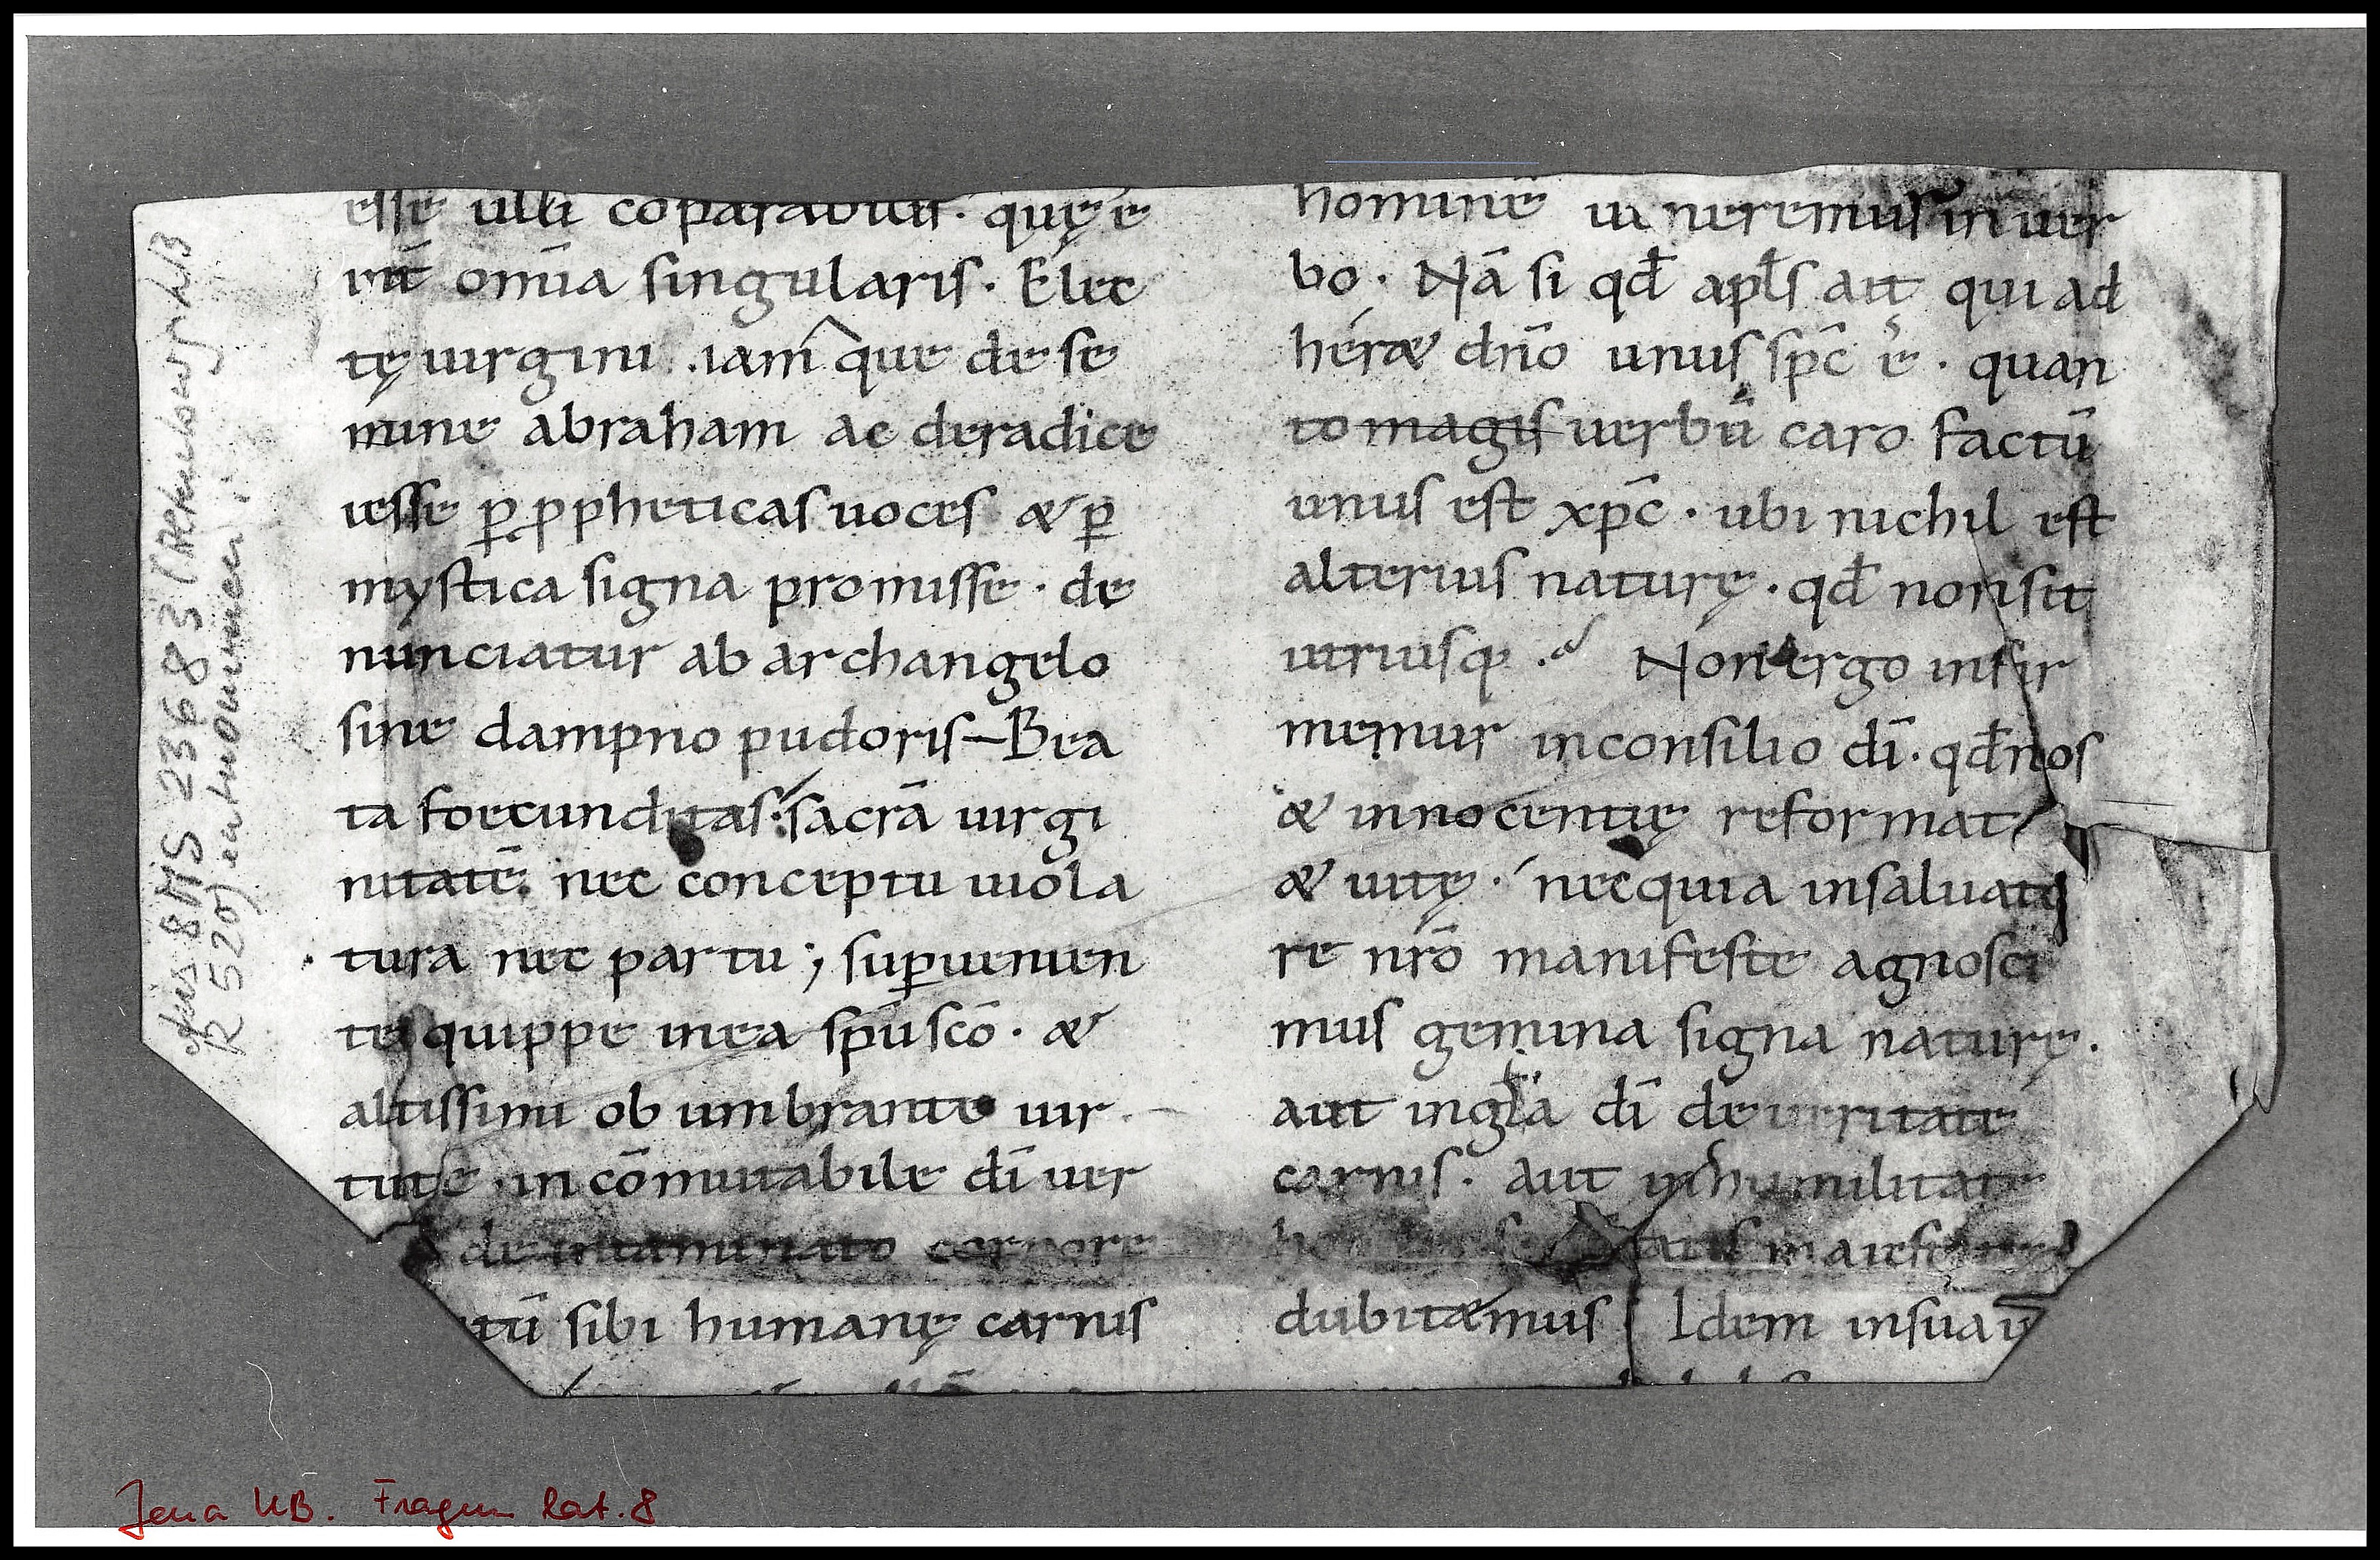 esse ulli cōparabilis. quę ē
int̄ om̄ia singularis. Elec
tę uirgini. iamque de se
mine abraham ac de radice
iesse ꝑ ꝓpheticas uoces & ꝑ
mystica signa promisse. de
nunciatur ab archangelo
sine dampno pudoris Bea
ta foecunditas. sacrā uirgi
nitatē. nec conceptu uiola
tura nec partu; suꝑuenien
te quippe in ea sp̄u sc̄o. &
altissimi obumbrante uir
tute. incōmutabile dī uer
de intaminato corpore
tū sibi humanę carnis
hominē inueneremus in uer
bo. Nā si qđ apl̄s ait qui ad
heræ dn̄o unus sp̄c ē. quan
to magis uerbū caro factū
unus est xp̄c. ubi nichil est
alterius naturę. qđ non sit
utriusq; Non ergo infir
memur in consilio dī. qđ nos
& innocentię reformat
& uitę. nec quia in saluato
re nr̄o manifeste agnosci
mus gemina signa naturę.
aut in gl̄a dī de ueritate
carnis. aut in humilitate
dubitæmus Idem in sua
Jena UB. Fragm. lat. 8